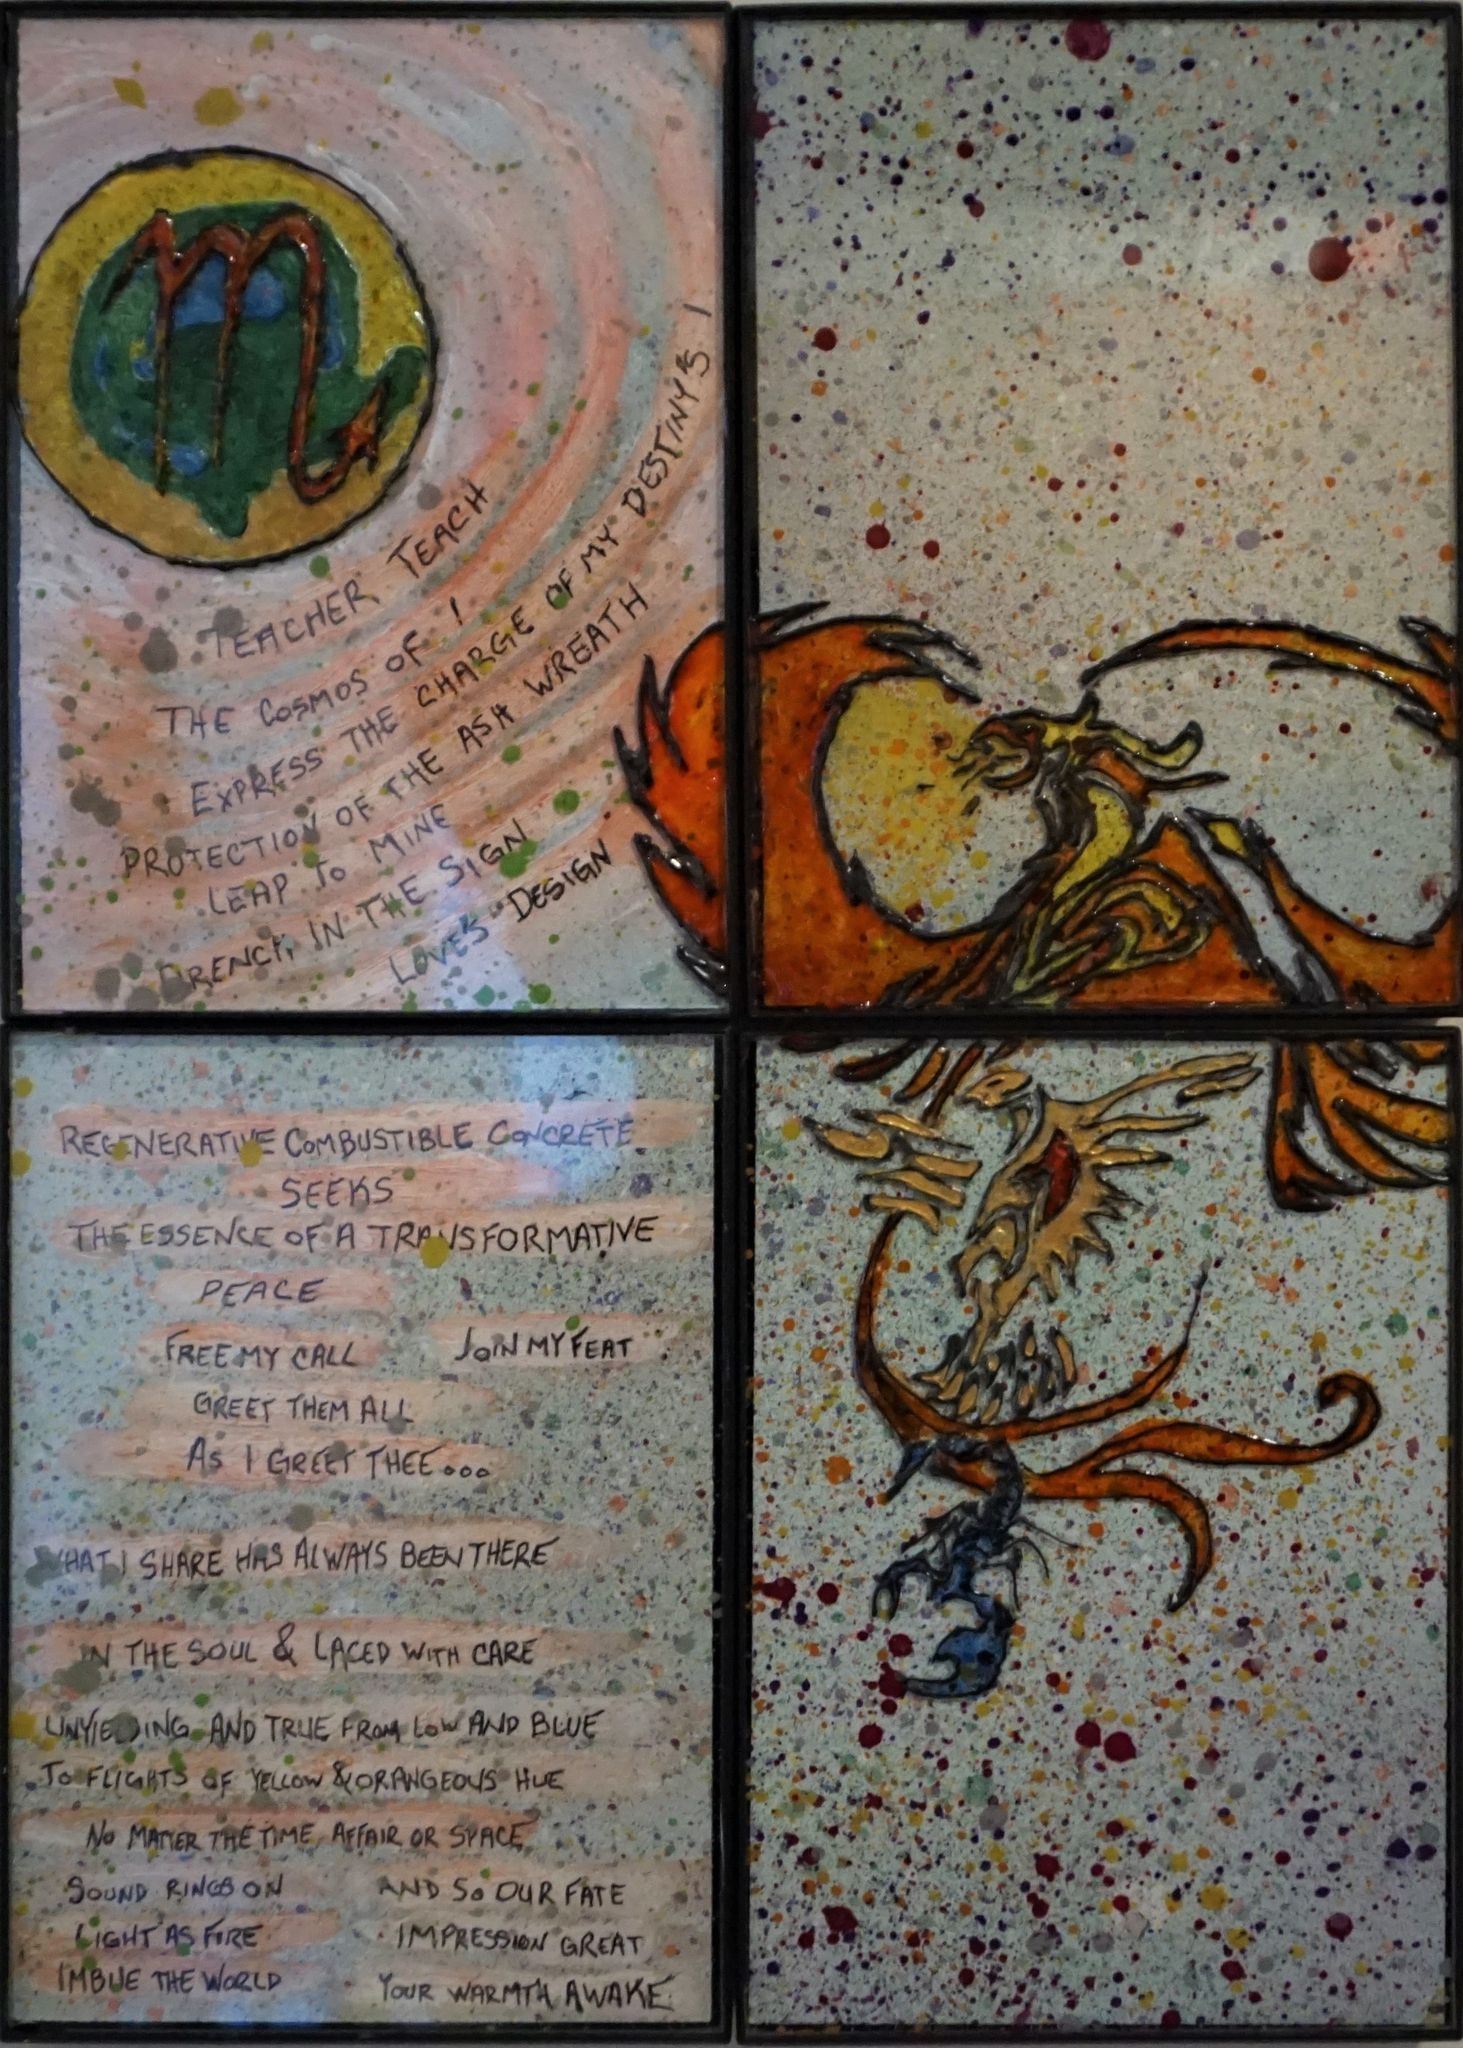 TEACHER TEACH
THE COSMOS OF I
EXPRESS THE CHARGE OF MY DESTINY'S I
PROTECTION OF THE ASH WREATH
LEAP TO MINE
DRENCH IN THE SIGN
LOVE'S DESIGN
REGENERATIVE COMBUSTIBLE CONCRETE
SEEKS
THE ESSENCE OF A TRANSFORMATIVE
PEACE
FREE MY CALL JOIN MY FEAT
GREET THEM ALL
AS I GREET THEE...
WHAT I SHARE HAS ALWAYS BEEN THERE
IN THE SOUL & LACED WITH CARE
UNYIELDING AND TRUE FROM LOW AND BLUE
TO FLIGHTS OF YELLOW & ORANGEOUS HUE
NO MATTER THE TIME, AFFAIR OR SPACE
SOUND RINGS ON AND SO OUR FATE
LIGHT AS FIRE IMPRESSION GREAT
IMBUE THE WORLD YOUR WARMTH AWAKE